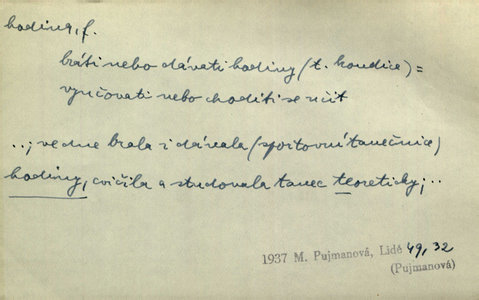 hodina, f.
bráti nebo dávati hodiny (t. kondice) =
vyučovati nebo choditi se učit
..; ve dne brala i dávala (sportovní tanečnice)
hodiny, cvičila a studovala tanec teoreticky; ..
1937 M. Pujmanová, Lidé 49, 32
(Pujmanová)